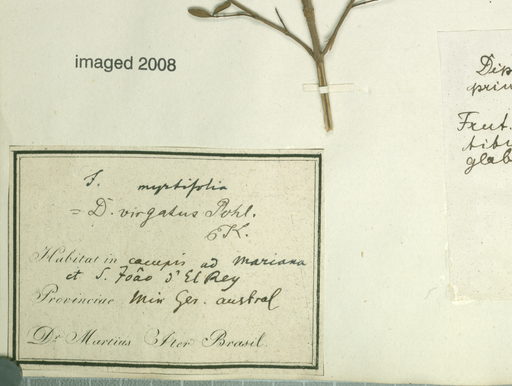 imaged 2008
F. myrtifolia
= D. virgatus Pohl.
Habitat in campis ad Mariana
et S. João d'El Rey
Provinciae Min Ger. austral
Dr. Martius Iter Brasil.
Frut.
glab